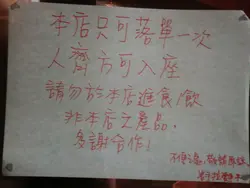 本店只可落單一次
人齊方可入座
請勿於本店進食/飲
非本店之產品.
多謝合作!
不便之處,敬請原諒